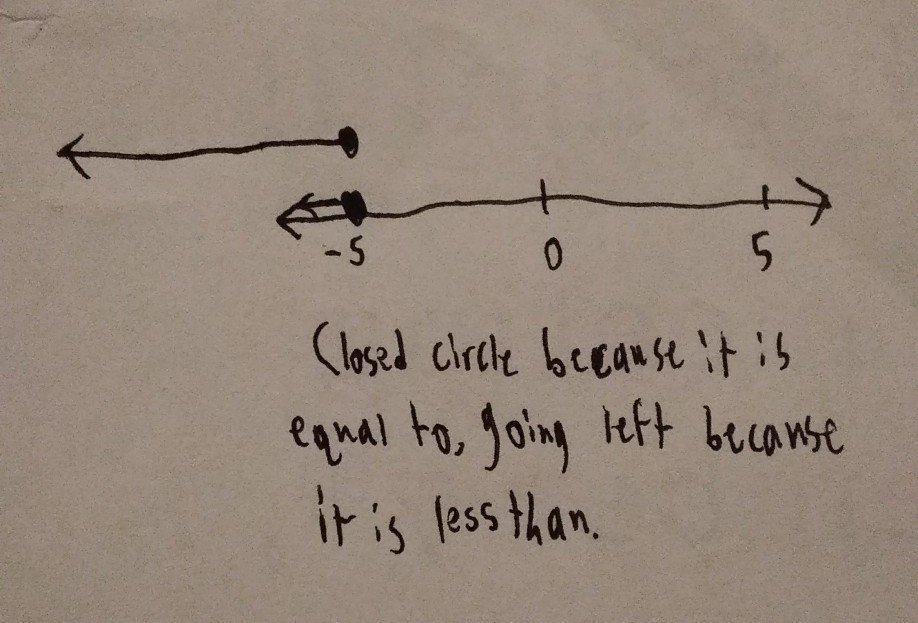 -5 0 5
Closed circle because it is
equal to, going left because
it is less than.